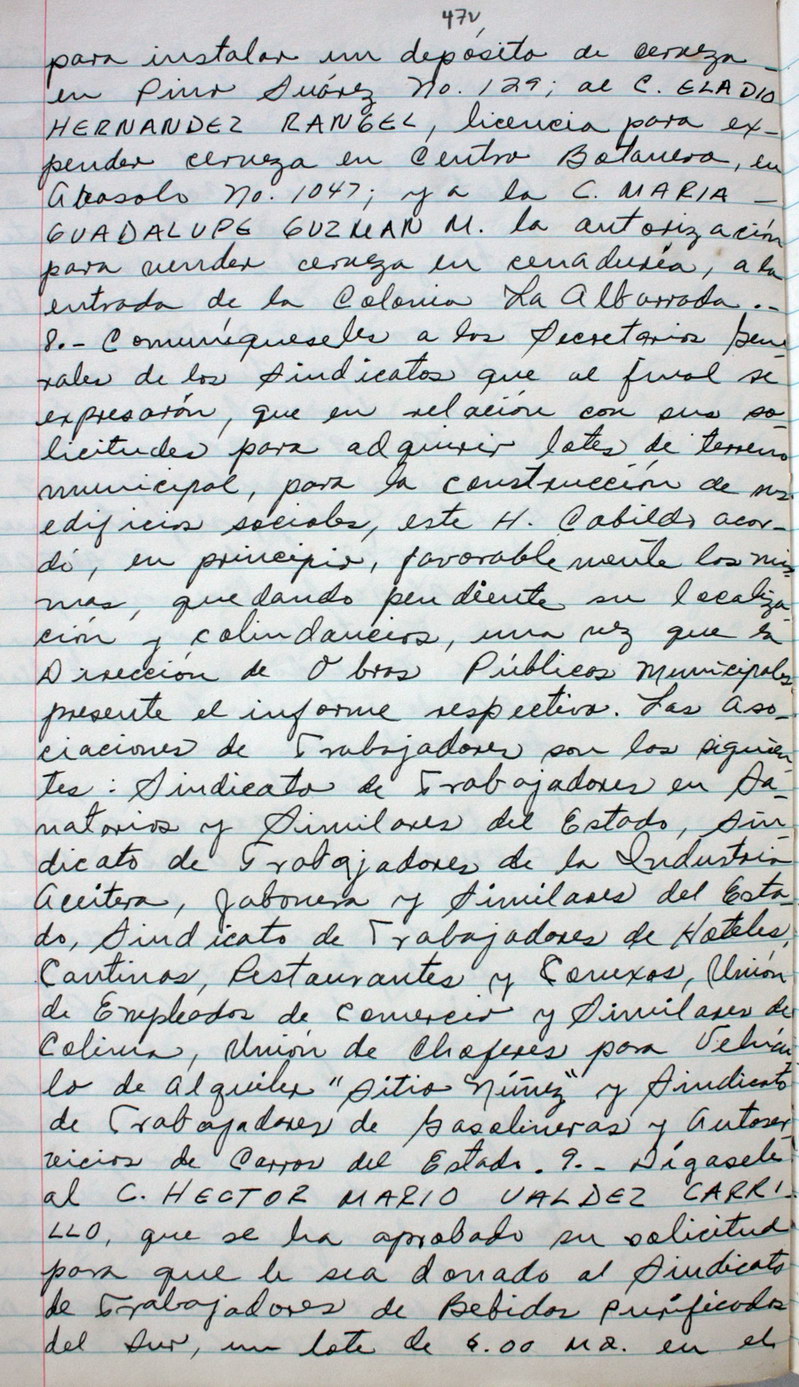 47v
para instalar un depósito de cerveza -
en Pino Suárez No. 129; al C. ELADIO
HERNANDEZ RANGEL, licencia para ex-
pender cerveza en Centro Botanero, en
Abasolo No. 1047; y a la C. MARIA -
GUADALUPE GUZMAN M. la autorización
para vender cerveza en cenaduría, a la
entrada de la Colonia La Albarrada .-
8.- Comuníqueseles a los Secretarios Gene
rales de los Sindicatos que al final se
expresarón, que en relación con sus so-
licitudes para adquirir lotes de terreno
municipal, para la construcción de sus
edificios sociales, este H. Cabildo acor-
dó, en principio, favorablemente las mis
mas, quedando pendiente su localiza-
ción y colindancias, una vez que la
Dirección de Obras Públicas Municipales
presente el informe respectivo. Las Aso-
ciaciones de Trabajadores son las siguien
tes: Sindicato de Trabajadores en Sa-
natorios y Similares del Estado, Sin-
dicato de Trabajadores de la Industria
Aceitera, Jabonera y Similares del Esta-
do, Sindicato de Trabajadores de Hoteles,
Cantinas, Restaurantes y Conexos, Unión
de Empleados de Comercio y Similares de
Colima, Unión de Choferes para Vehícu
lo de Alquiler "Sitio Núñez" y Sindicato
de Trabajadores de Gasolineras y Autoser
vicios de Carros del Estado. 9.- Dígasele
al C. HECTOR MARIO VALDEZ CARRI-
LLO, que se ha aprobado su solicitud
para que le sea donado al Sindicato
de Trabajadores de Bebidas Purificadas
del Sur, un lote de 6.00 M2. en el